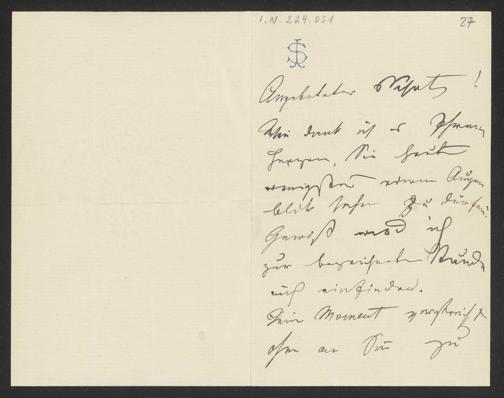 I.N. 224.031
27
JS
Angebeteter Schatz!
Wie dank ich es Ihrem
Herzen, Sie heute
wenigstens einen Augen
blick sehen zu dürfen.
Gewiß werd ich
zur bezeichneten Stunde
mich einfinden.
Kein Moment verstreicht
ohne an Sie zu